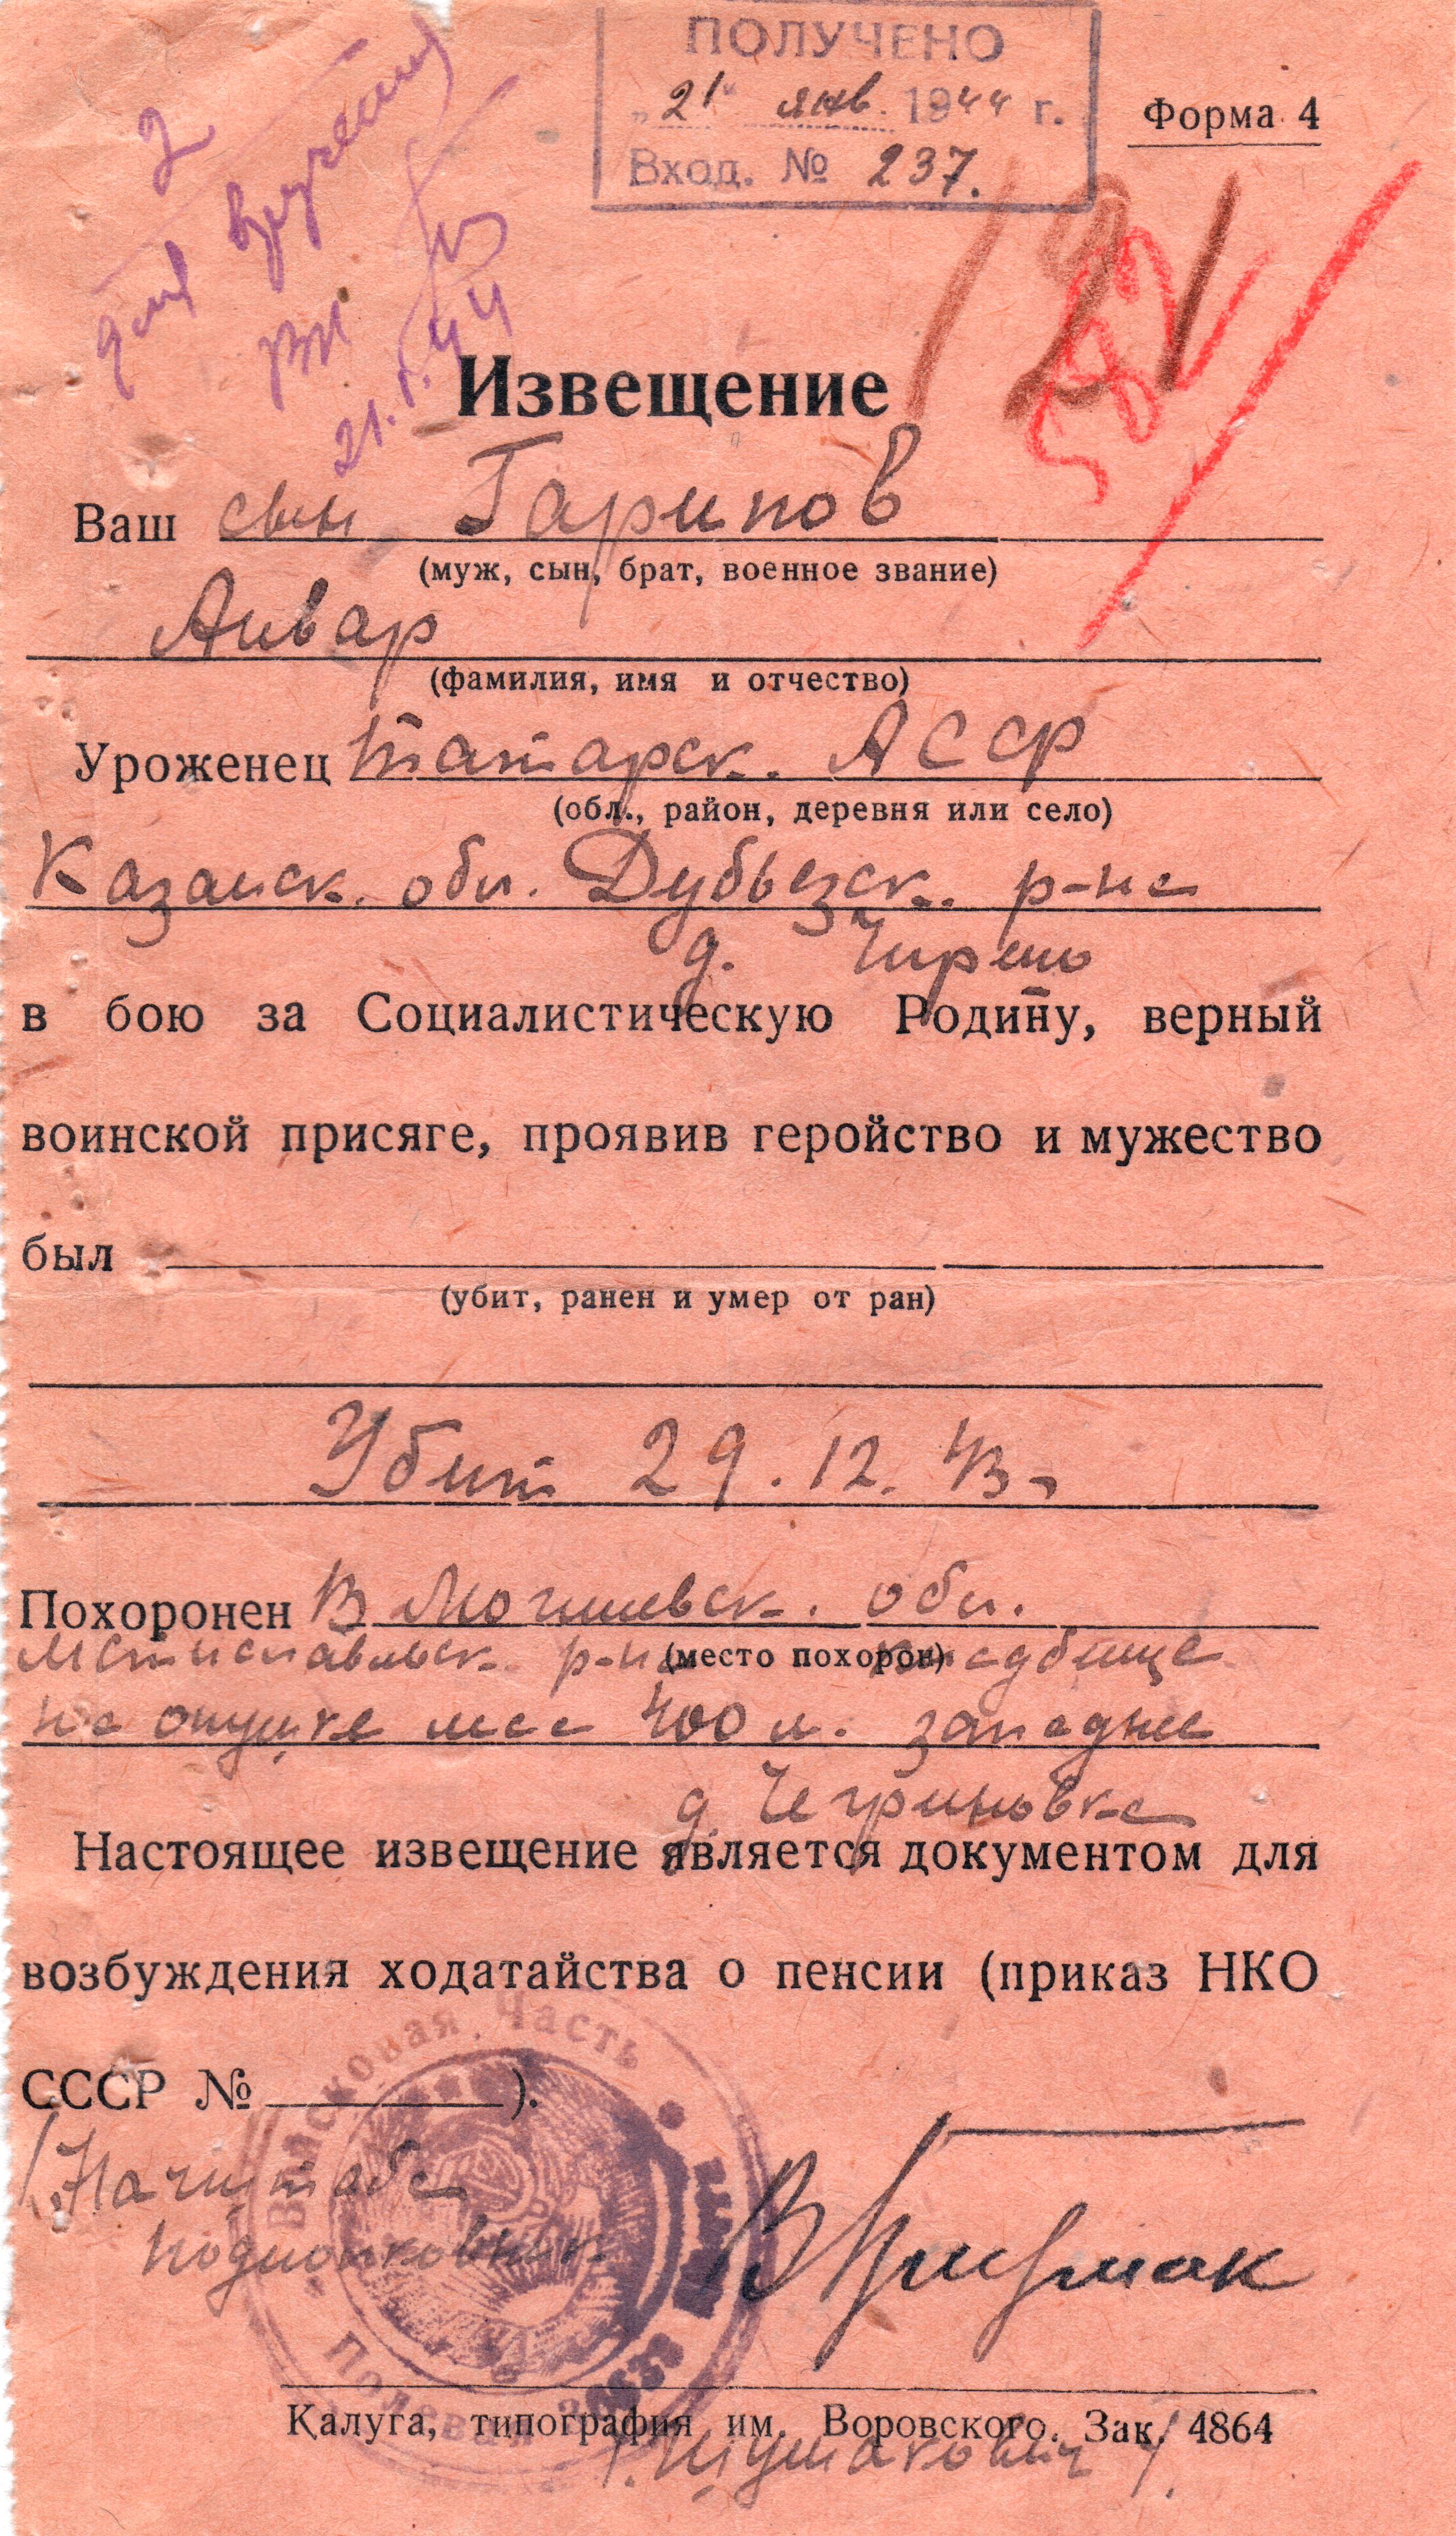 ПОЛУЧЕНО
„21“ янв. 1944 г.
Вход. № 237.
Форма 4
2
для вручения
21.1.44
121
Извещение
Ваш сын Гарипов
(муж, сын, брат, военное звание)
Анвар
(фамилия, имя и отчество)
Уроженец татарск. АССР
(обл., район, деревня или село)
Казанск. обл. Дубьязск. р-на
д.
в бою за Социалистическую Родину, верный
воинской присяге, проявив геройство и мужество
был
(убит, ранен и умер от ран)
Убит 29.12.43
Похоронен В Могилевск. обл.
(место похорон)
Мстиславльск. р-на кладбище
на опушке леса 400 м. западнее
д.
Настоящее извещение является документом для
возбуждения ходатайства о пенсии (приказ НКО
СССР № ).
Войсковая Часть
Полевая
Начштаба
подполковник
Калуга, типография им. Воровского. Зак. 4864